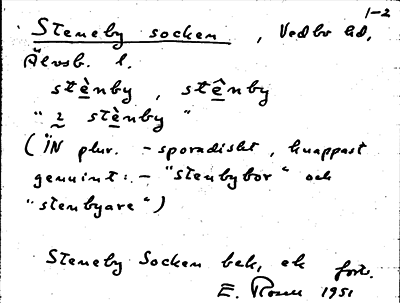 1-2
Steneby socken, Vedbo hd,
Älvsb. l.
stè̱nby, stê̱nby
" 2 stè̱nby "
(ÏN plur. - sporadiskt, knappast
genuint: - "stenbybor" och
"stenbyare")
Steneby Socken bek, ek forts.
E. Rosen 1951